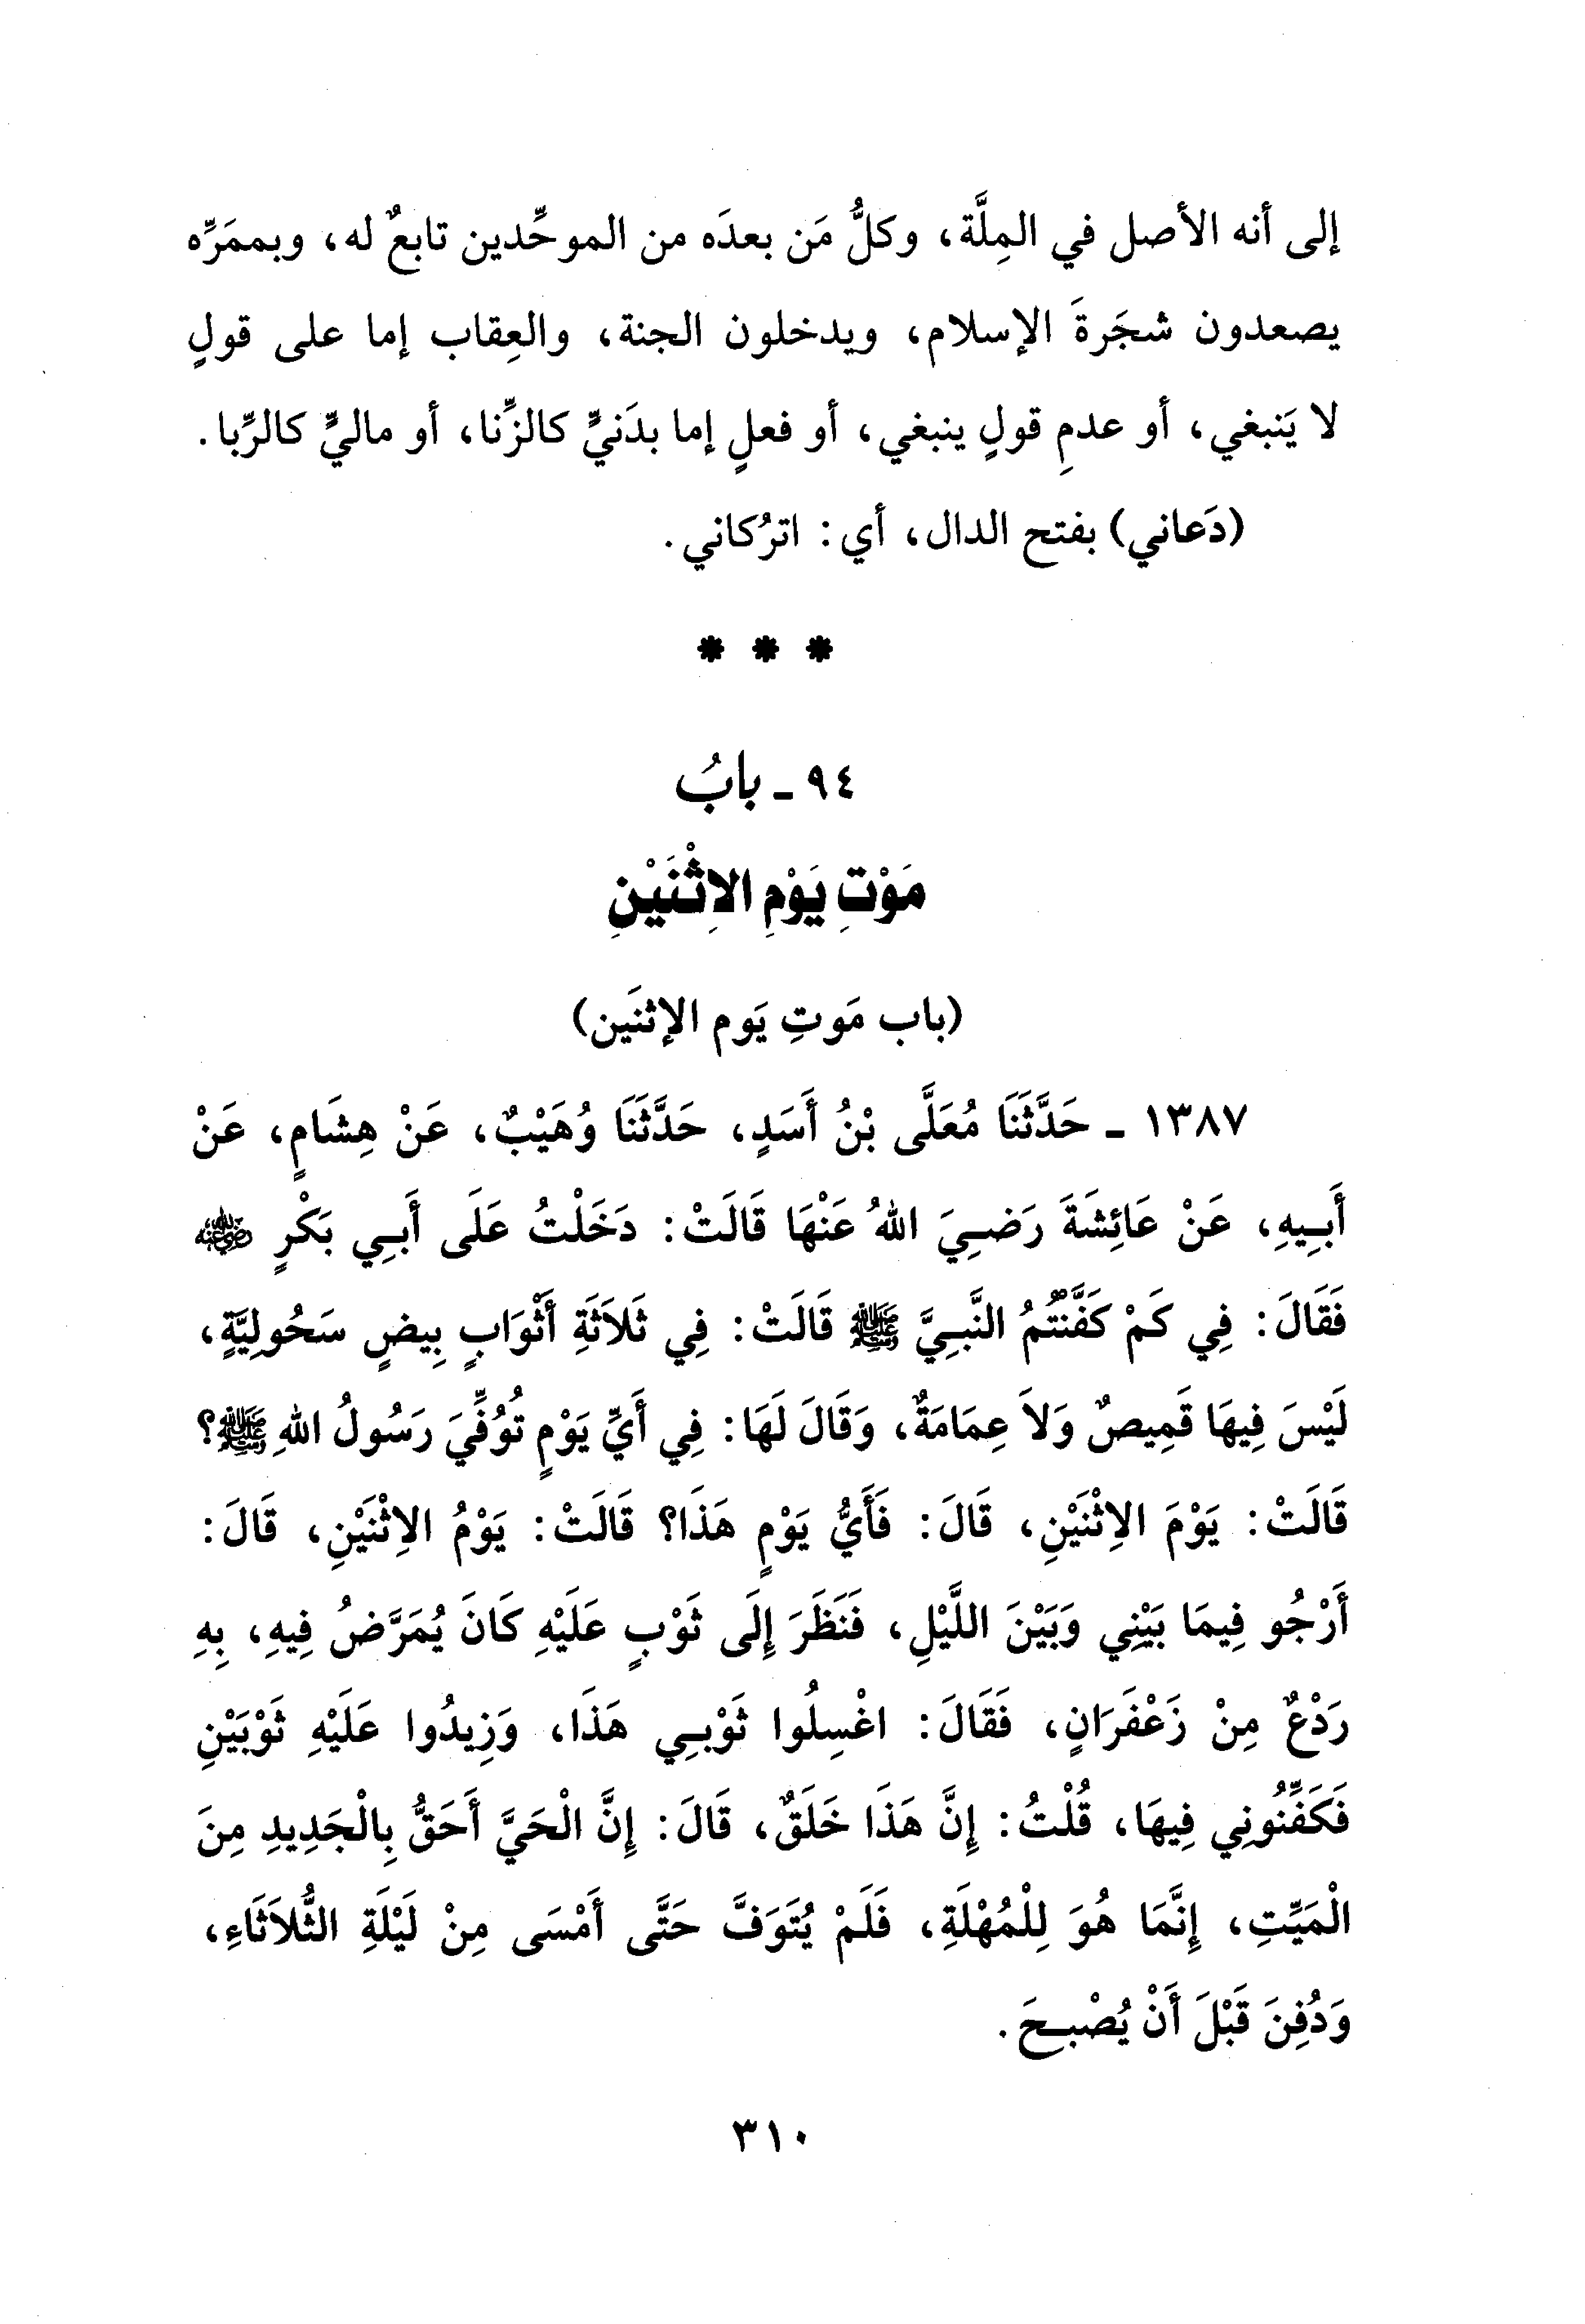 إلى أنه الأصل في المِلَّة، وكلُّ مَن بعدَه من الموحِّدين تابعٌ له، وبممَرِّه
يصعدون شجَرةَ الإسلام، ويدخلون الجنة، والعِقاب إما على قولٍ
لا يَنبغي، أو عدمِ قولٍ ينبغي، أو فعلٍ إما بدَنيٍّ كالزِّنا، أو ماليٍّ كالرِّبا.
(دَعاني) بفتح الدال، أي: اترُكاني.
* * *
٩٤ - بابُ
مَوْتِ يَوْمِ الاِثْنَيْنِ
(باب مَوتِ يَوم الإثنَين)
١٣٨٧ - حَدَّثَنَا مُعَلَّى بْنُ أَسَدٍ، حَدَّثَنَا وُهَيْبٌ، عَنْ هِشَامٍ، عَنْ
أَبِيهِ، عَنْ عَائِشَةَ رَضِيَ اللهُ عَنْهَا قَالَتْ: دَخَلْتُ عَلَى أَبِي بَكْرٍ رضي الله عنه
فَقَالَ: فِي كَمْ كَفَّنْتُمُ النَّبِيَّ ﷺ قَالَتْ: فِي ثَلاَثَةِ أَثْوَابٍ بِيضٍ سَحُولِيَّةٍ،
لَيْسَ فِيهَا قَمِيصٌ وَلاَ عِمَامَةٌ، وَقَالَ لَهَا: فِي أَيِّ يَوْمٍ تُوُفِّيَ رَسُولُ اللهِ ﷺ؟
قَالَتْ: يَوْمَ الاِثْنَيْنِ، قَالَ: فَأَيُّ يَوْمٍ هَذَا؟ قَالَتْ: يَوْمُ الاِثْنَيْنِ، قَالَ:
أَرْجُو فِيمَا بَيْنِي وَبَيْنَ اللَّيْلِ، فَنَظَرَ إِلَى ثَوْبٍ عَلَيْهِ كَانَ يُمَرَّضُ فِيهِ، بِهِ
رَدْعٌ مِنْ زَعْفَرَانٍ، فَقَالَ: اغْسِلُوا ثَوْبِي هَذَا، وَزِيدُوا عَلَيْهِ ثَوْبَيْنِ
فَكَفِّنُونِي فِيهَا، قُلْتُ: إِنَّ هَذَا خَلَقٌ، قَالَ: إِنَّ الْحَيَّ أَحَقُّ بِالْجَدِيدِ مِنَ
الْمَيِّتِ، إِنَّمَا هُوَ لِلْمُهْلَةِ، فَلَمْ يُتَوَفَّ حَتَّى أَمْسَى مِنْ لَيْلَةِ الثُّلاَثَاءِ،
وَدُفِنَ قَبْلَ أَنْ يُصْبِحَ.
٣١٠